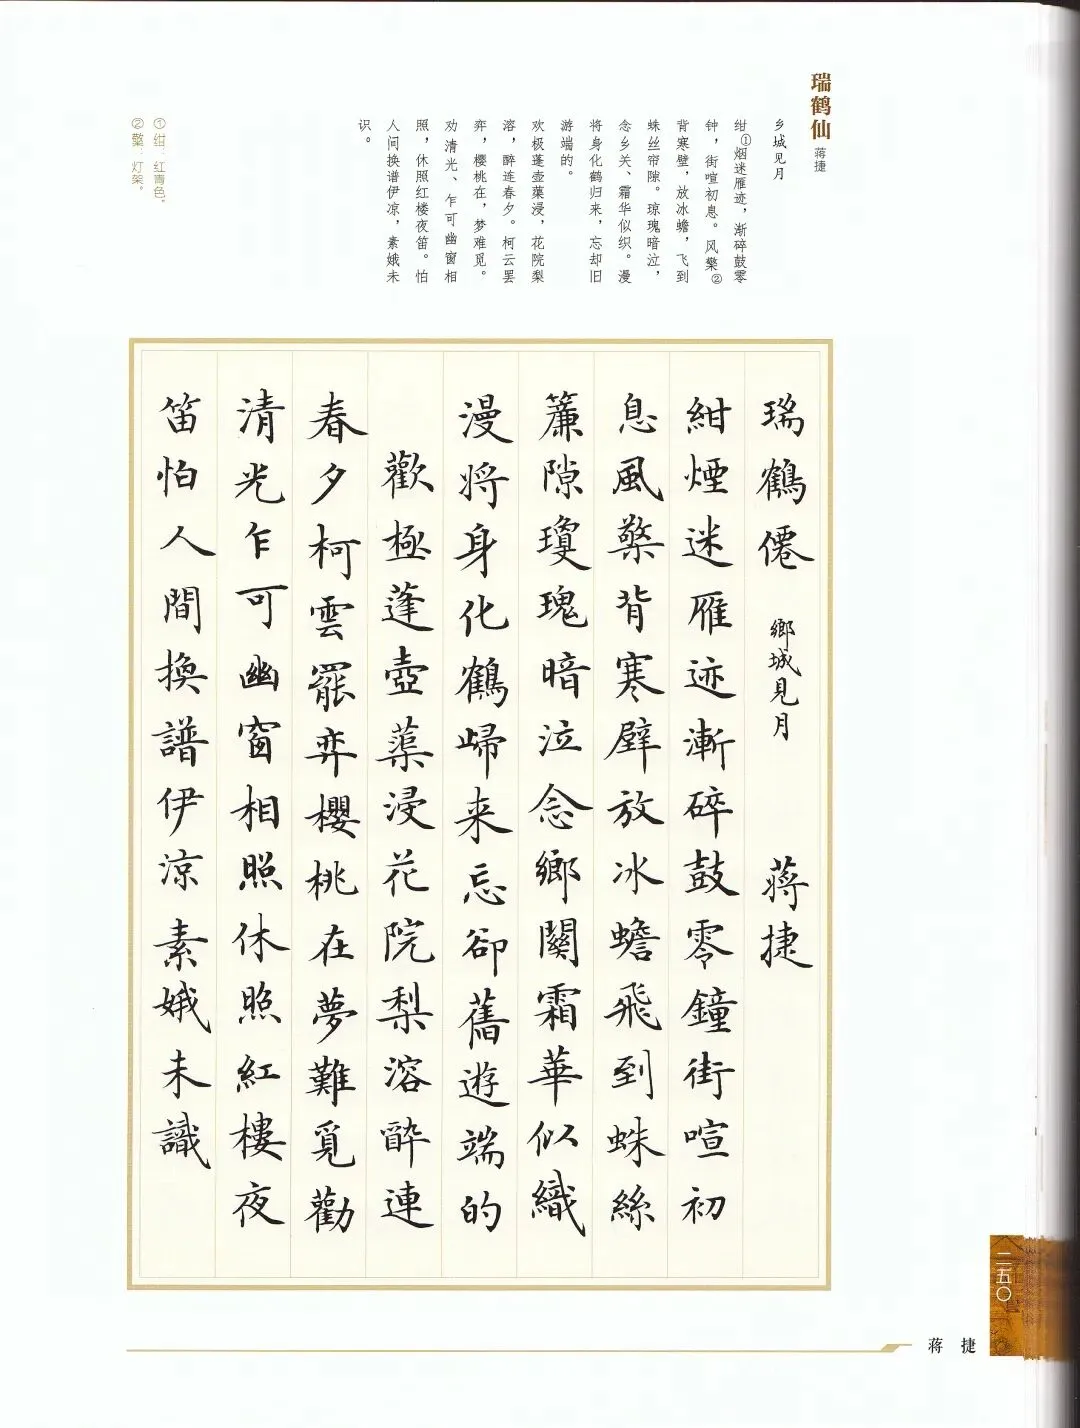 瑞鹤仙 蒋捷
乡城见月
绀①烟迷雁迹，渐碎鼓零
钟，街喧初息。风檠②
背寒壁，放冰蟾，飞到
蛛丝帘隙。琼瑰暗泣，
念乡关、霜华似织。漫
将身化鹤归来，忘却旧
游端的。
欢极蓬壶蕖浸，花院梨
溶，醉连春夕。柯云罢
弈，樱桃在，梦难觅。
劝清光、乍可幽窗相
照，休照红楼夜笛。怕
人间换谱伊凉，素娥未
识。
① 绀：红青色。
② 檠：灯架。
瑞鶴僊 鄉城見月 蔣捷
紺煙迷雁迹漸碎鼓零鐘街喧初
息風檠背寒壁放冰蟾飛到蛛絲
簾隙瓊瑰暗泣念鄉關霜華似織
漫將身化鶴歸来忘卻舊遊端的
歡極蓬壺蕖浸花院梨溶醉連
春夕柯雲罷弈櫻桃在夢難覓勸
清光乍可幽窗相照休照紅樓夜
笛怕人間換譜伊涼素娥未識
二五〇
蒋捷